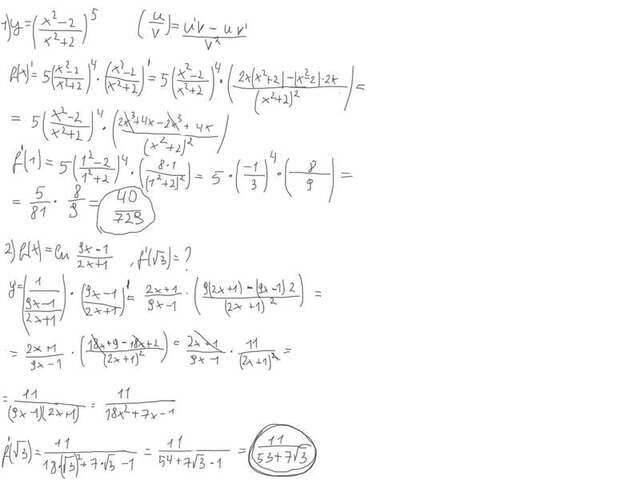 1) y = (x²-2 / x²+2)⁵   (u/v)' = u'v - uv' / v²
f(x)' = 5(x²-2 / x²+2)⁴ · (x²-2 / x²+2)' = 5(x²-2 / x²+2)⁴ · (2x(x²+2) - (x²-2)·2x / (x²+2)²) =
= 5(x²-2 / x²+2)⁴ · (2x³+4x-2x³+4x / (x²+2)²)
f'(1) = 5(1²-2 / 1²+2)⁴ · (8·1 / (1²+2)²) = 5 · (-1 / 3)⁴ · (8 / 9) =
= 5/81 · 8/9 = 40/729
2) f(x) = ln 9x-1 / 2x+1 , f'(√3) = ?
y = (1 / (9x-1 / 2x+1)) · (9x-1 / 2x+1)' = 2x+1 / 9x-1 · (9(2x+1) - (9x-1)2 / (2x+1)²) =
= 2x+1 / 9x-1 · (18x+9-18x+2 / (2x+1)²) = 2x+1 / 9x-1 · 11 / (2x+1)² =
= 11 / (9x-1)(2x+1) = 11 / 18x²+7x-1
f'(√3) = 11 / 18·(√3)²+7·√3-1 = 11 / 54+7√3-1 = 11 / 53+7√3